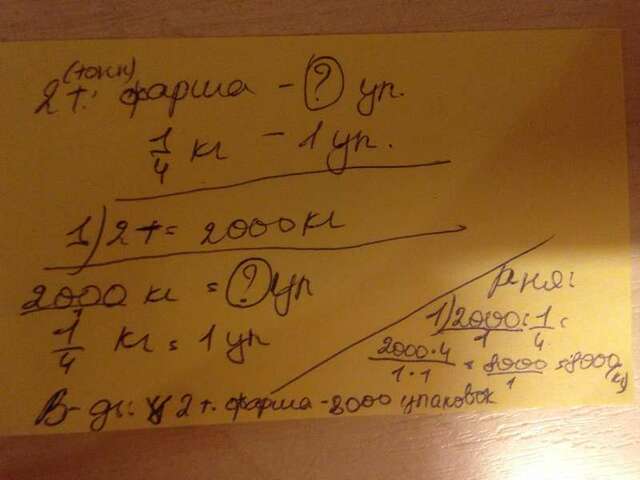 (тонн)
2 т. фарша - ? уп.
1/4 кг - 1 уп.
1) 2 т = 2000 кг
2000 кг = ? уп
1/4 кг = 1 уп
1) 2000/1 : 1/4 =
2000·4/1·1 = 8000/1 = 8000
В-дь: 2 т. фарша - 8000 упаковок